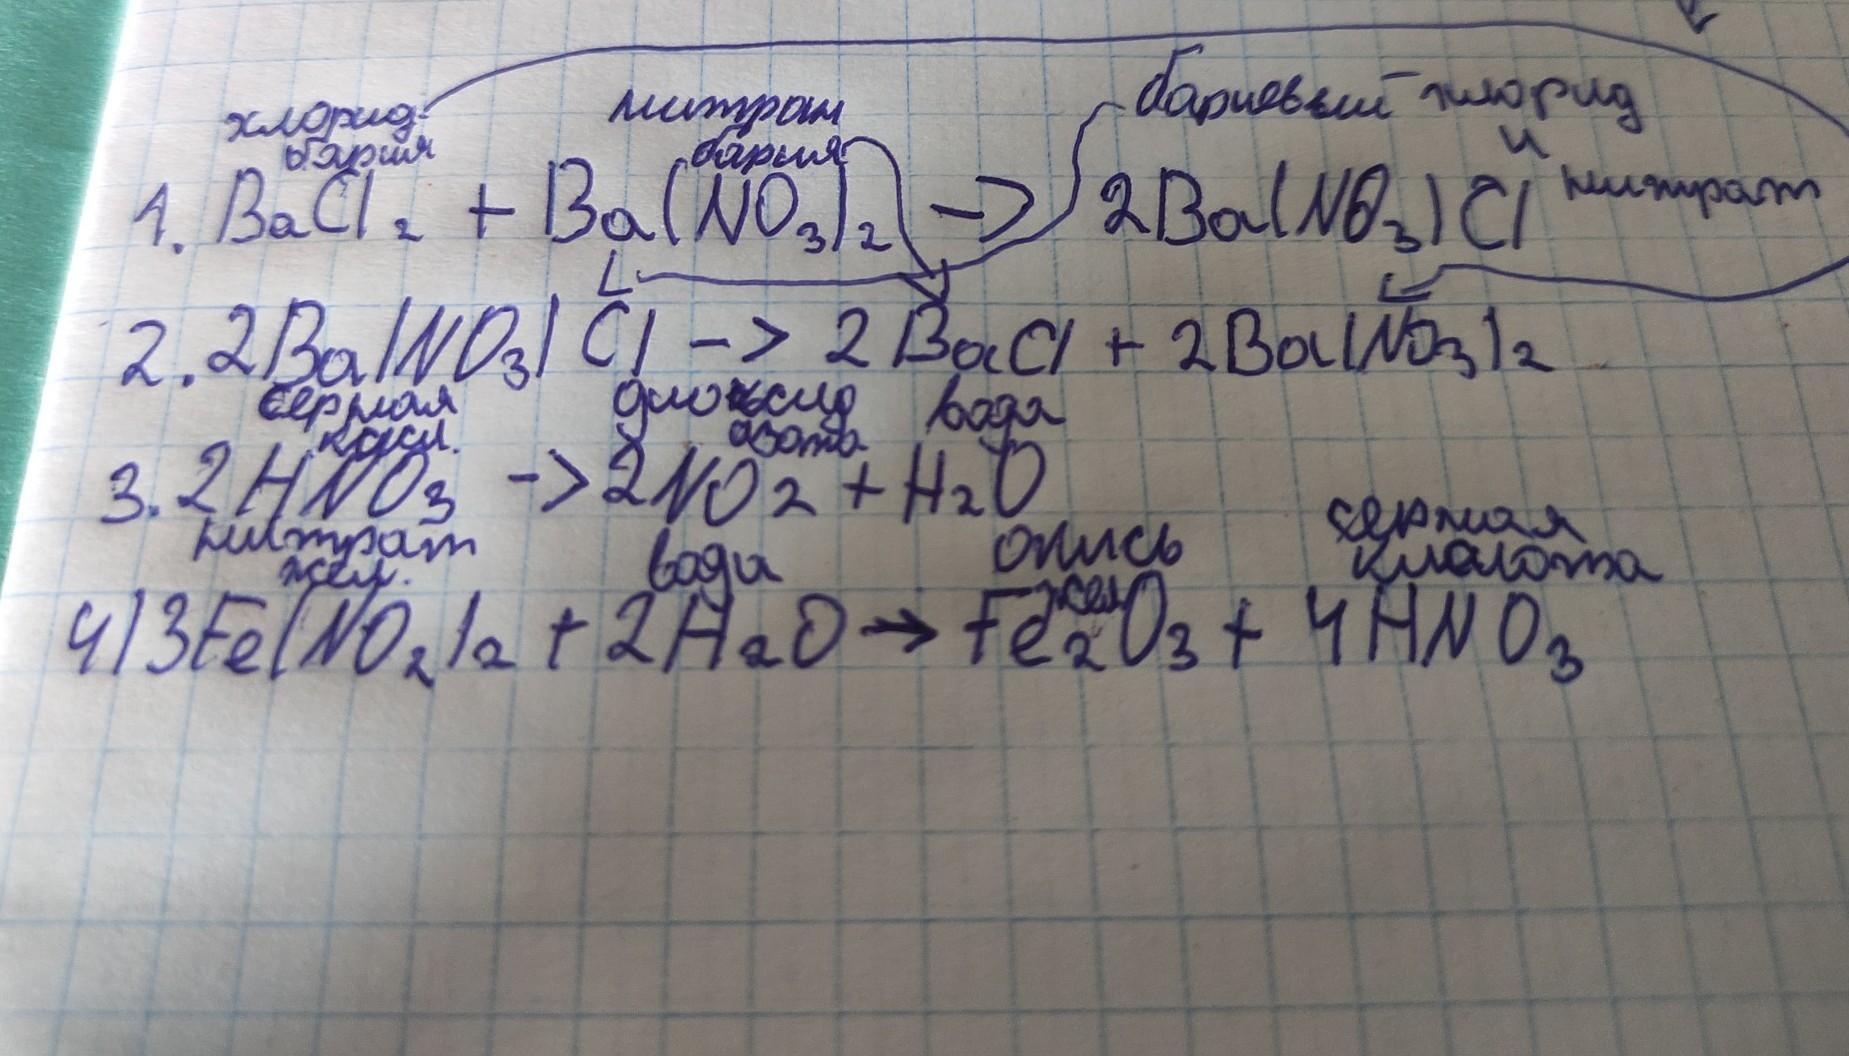 хлорид бария нитрат бария бариевый хлорид и нитрат
1. BaCl₂ + Ba(NO₃)₂ -> 2Ba(NO₃)Cl
2. 2Ba(NO₃)Cl -> 2BaCl + 2Ba(NO₃)₂
серная кисл. диоксид азота вода
3. 2HNO₃ -> 2NO₂ + H₂O
нитрат жел. вода окись жел серная кислота
4) 3Fe(NO₂)₂ + 2H₂O → Fe₂O₃ + 4HNO₃